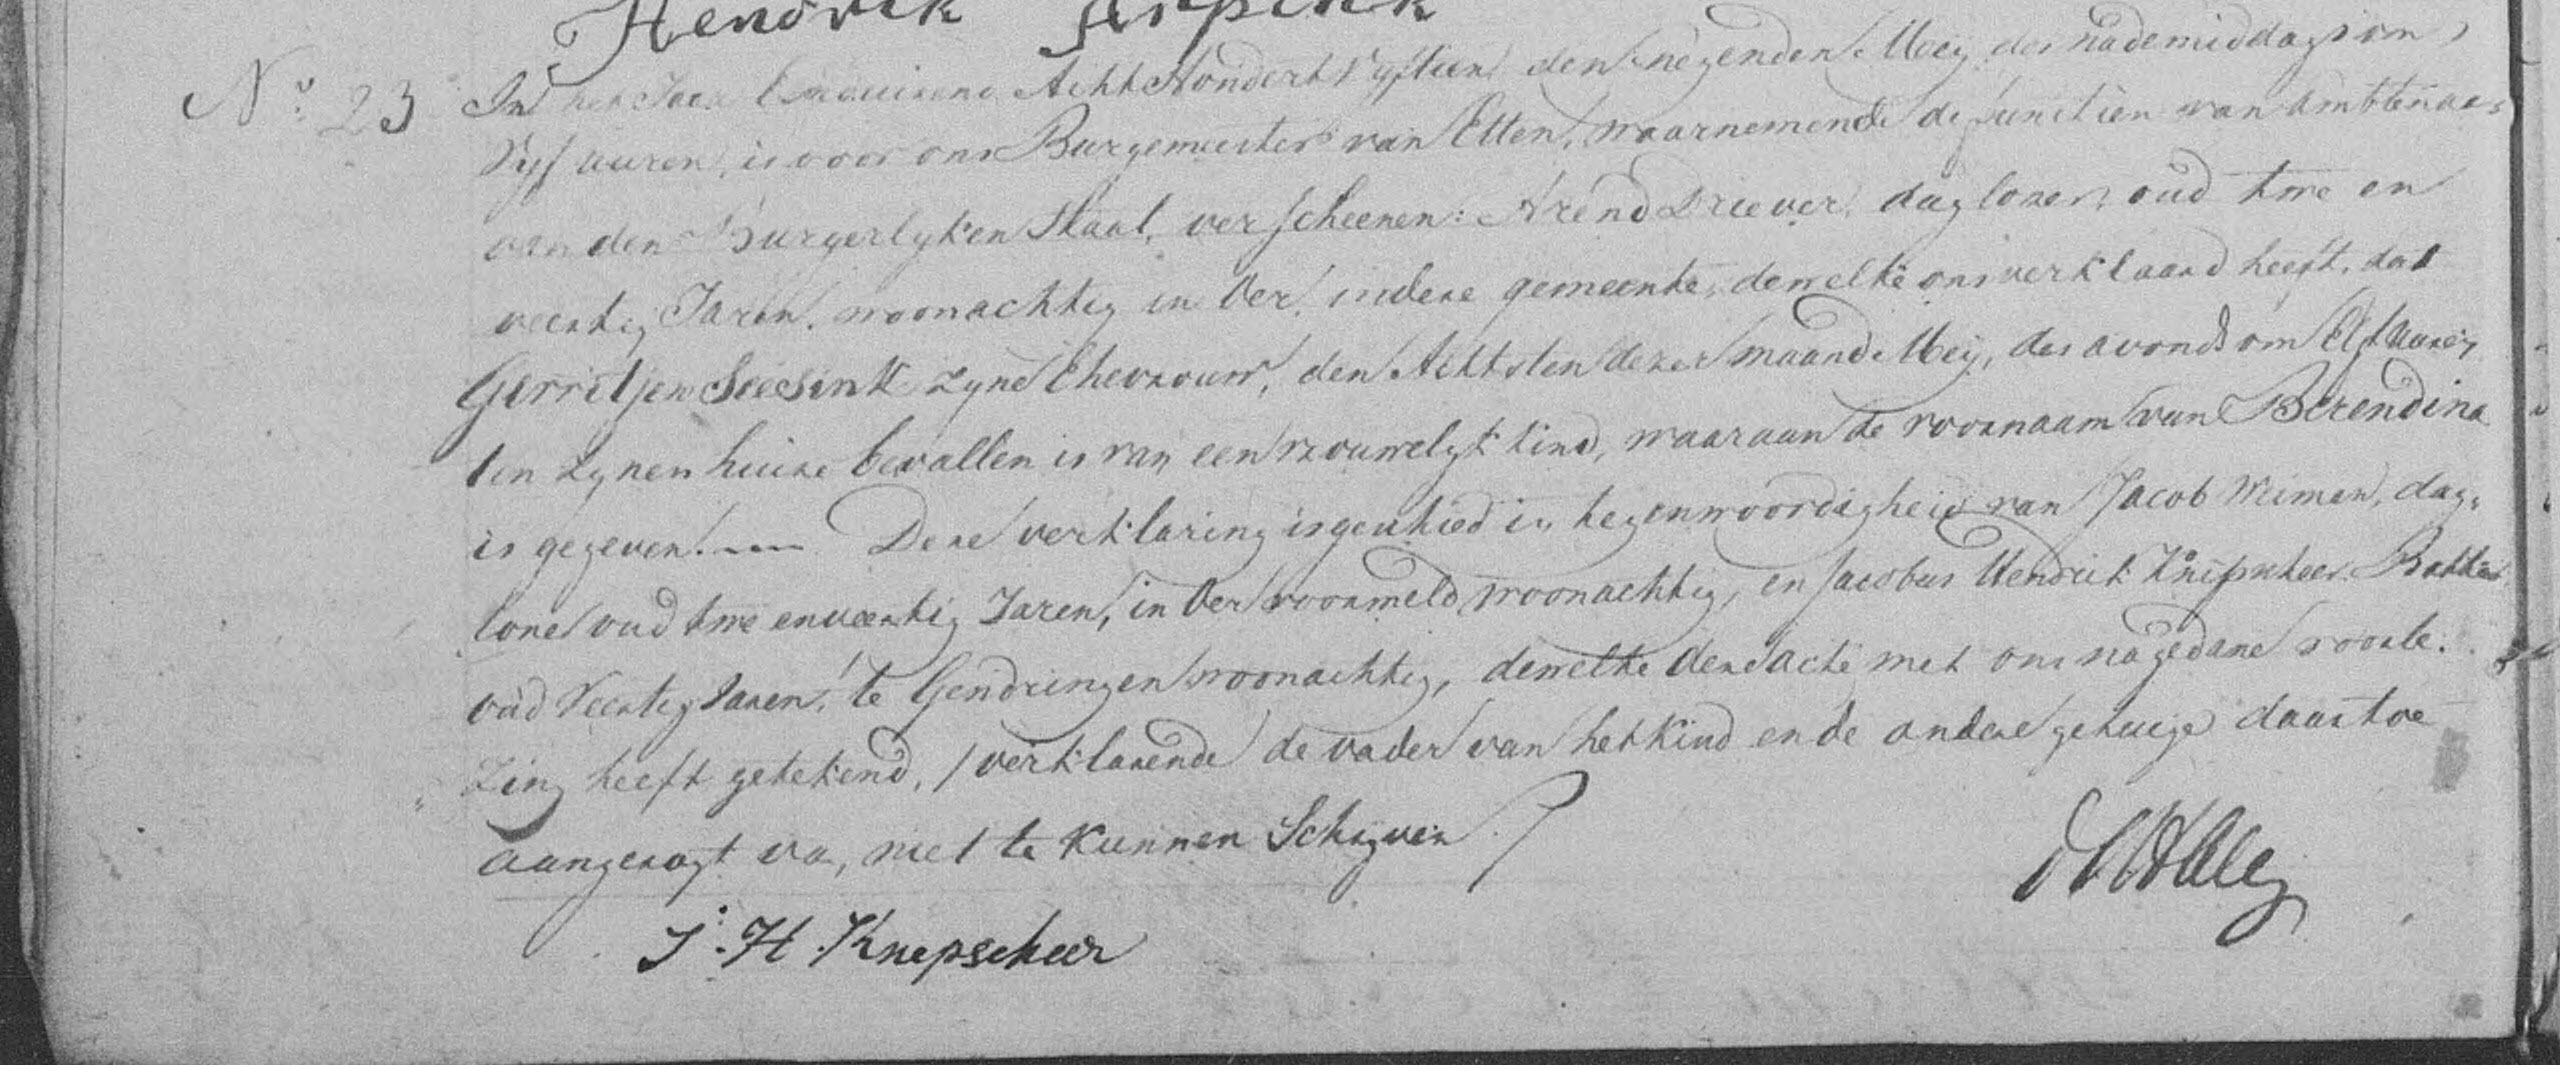 Hendrik
No. 23 In het Jaar Eenduizend Acht Hondert Vyftien den negenden Meij des nademiddags om
Vyf uuren, is voor ons Burgemeester van Etten, waarnemende de functien van Ambtenaar
van den Burgerlyken Staat, verscheenen: Arend Driever, dagloner, oud twe en
veertig Jaren, woonachtig in Ver, in deze gemeente, dewelke ons verklaard heeft, dat
Gerritjen Seesink zyne Ehevrouw, den Achtsten dezer maand Meij, des avonds om Elf uuren
ten zynen huize bevallen is van een vrouwelyk kind, waaraan de voornaam van Berendina
is gegeven. Deze verklaring is geschied in tegenwoordigheid van Jacob Wiman, dag-
loner oud twe en veertig Jaren, in Ver voormeld woonachtig, en Jacobus Hendrik Knipscheer Bakker
oud Veertig Jaren, te Gendringen woonachtig, dewelke deze acte met ons na gedane voorle-
zing heeft getekend, / verklarende de vader van het kind en de andere getuige daar toe
aangezogt van, niet te kunnen Schryven /
J. H. Knepscheer